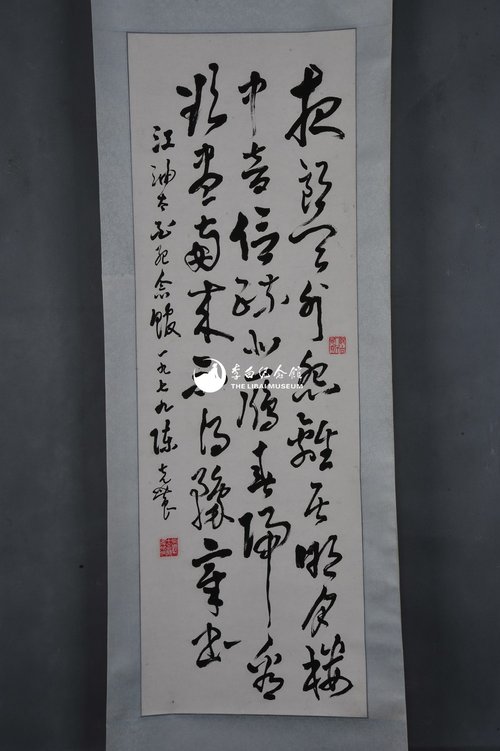 夜郎天外怨離居明月樓
中音信疏北雁春歸看
欲盡南来不得豫章書
江油太白紀念館一九七九陳
李白纪念館
THE LIBAI MUSEUM